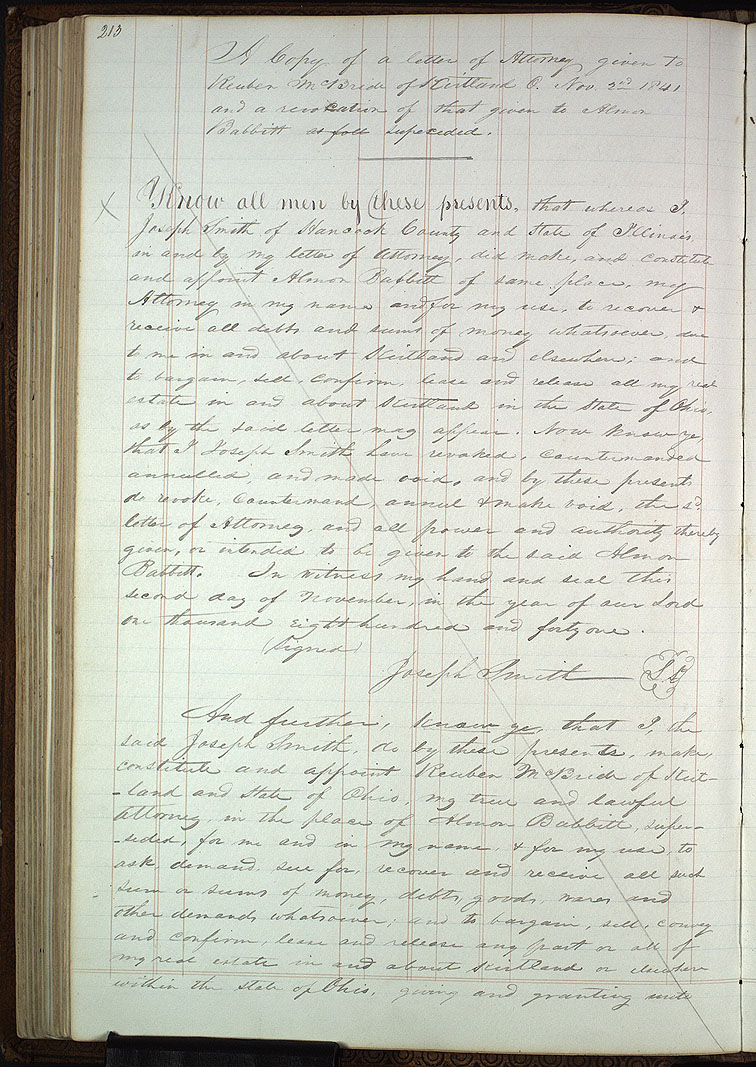 213
A Copy of a letter of Attorney given to
Reuben McBride of Kirtland O. Nov. 2nd 1841
and a revocation of that given to Almon
Babbitt as foll supeceded.
X Know all men by these presents, that whereas I,
Joseph Smith of Hancock County and State of Illinois,
in and by my letter of Attorney, did make, and constitute
and appoint Almon Babbitt of same place, my
Attorney in my name and for my use, to recover &
receive all debts and sums of money whatsoever, due
to me in and about Kirtland and elsewhere; and
to bargain, sell, confirm, lease and release all my real
estate in and about Kirtland in the State of Ohio,
as by the said letter may appear. Now Know ye,
that I Joseph Smith have revoked, countermanded
annulled, and made void, and by these presents
do revoke, countermand, annul & make void, the sd.
letter of Attorney, and all power and authority thereby
given, or intended to be given to the said Almon
Babbitt. In witness my hand and seal this
second day of November, in the year of our Lord
one thousand eight hundred and forty one.
(Signed)
Joseph Smith L S
And further, Know ye, that I, the
said Joseph Smith, do by these presents, make,
constitute and appoint Reuben McBride of Kirt-
-land and State of Ohio, my true and lawful
attorney, in the place of Almon Babbitt, super-
-seded, for me and in my name, & for my use, to
ask, demand, sue for, recover and receive all such
sum or sums of money, debts, goods, wares and
other demands whatsoever; and to bargain, sell, convey
and confirm, lease and release any part or all of
my real estate in and about Kirtland or elsewhere
within the State of Ohio, giving and granting unto